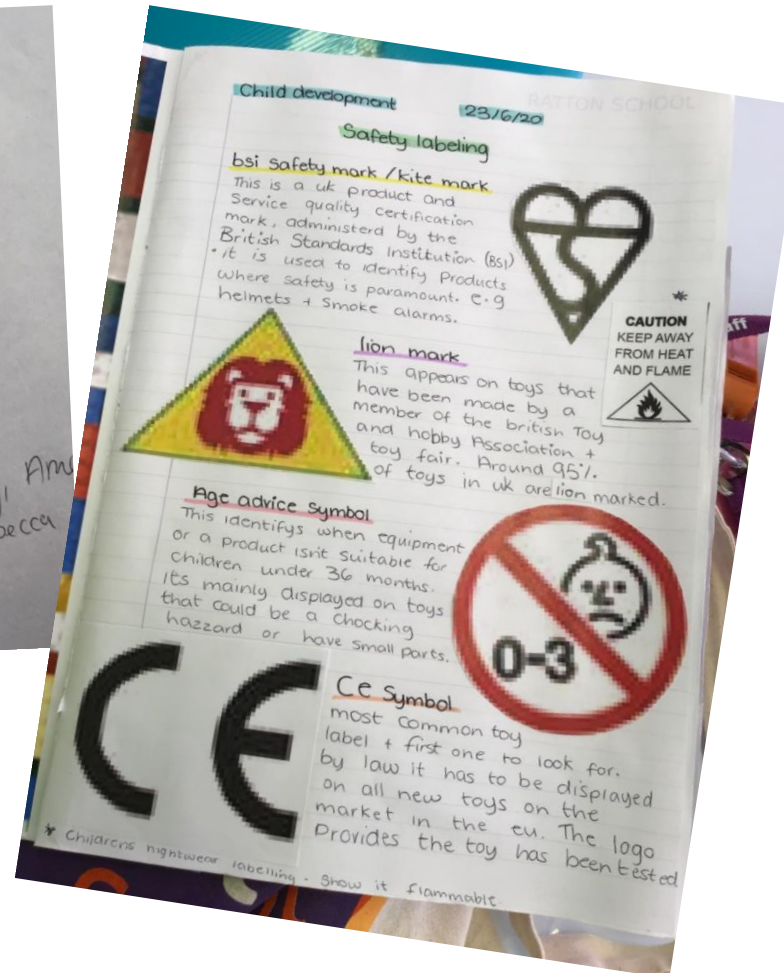 RATTON SCHOOL
Child development 23/6/20
Safety labeling
bsi safety mark / kite mark
This is a uk product and
Service quality certification
mark, administerd by the
British Standards Institution (BSI)
• it is used to identify Products
where safety is paramount. e.g
helmets + smoke alarms.
*
CAUTION
KEEP AWAY
FROM HEAT
AND FLAME
lion mark
This appears on toys that
have been made by a
member of the british Toy
and hobby Association +
toy fair. Around 95%
of toys in uk are lion marked.
Age advice symbol
This identifys when equipment
or a product isn't suitable for
children under 36 months.
its mainly displayed on toys
that could be a chocking
hazzard or have small parts.
0-3
CE
Ce Symbol
most common toy
label + first one to look for.
by law it has to be displayed
on all new toys on the
market in the eu. The logo
Provides the toy has been tested
* Childrens nightwear labelling - Show it flammable.
becca